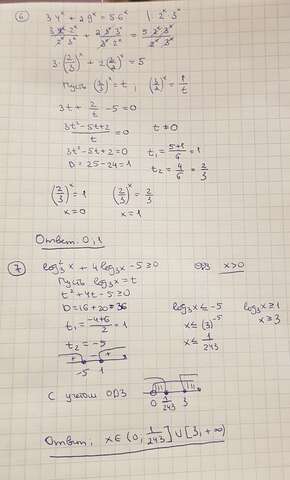 ⑥ 3·4ˣ + 2·9ˣ = 5·6ˣ | : 2ˣ·3ˣ
3·2ˣ·2ˣ/2ˣ·3ˣ + 2·3ˣ·3ˣ/3ˣ·2ˣ = 5·2ˣ·3ˣ/2ˣ·3ˣ
3·(2/3)ˣ + 2(3/2)ˣ = 5
Пусть (2/3)ˣ = t, (3/2)ˣ = 1/t
3t + 2/t - 5 = 0
3t² - 5t + 2 / t = 0 t ≠ 0
3t² - 5t + 2 = 0 t₁ = 5+1/6 = 1
D = 25 - 24 = 1 t₂ = 4/6 = 2/3
(2/3)ˣ = 1 (2/3)ˣ = 2/3
x = 0 x = 1
Ответ: 0, 1
⑦ log₃²x + 4log₃x - 5 ≥ 0 ОДЗ x > 0
Пусть log₃x = t
t² + 4t - 5 ≥ 0 log₃x ≤ -5 log₃x ≥ 1
D = 16 + 20 = 36 x ≤ (3)⁻⁵ x ≥ 3
t₁ = -4+6/2 = 1 x ≤ 1/243
t₂ = -5
+ - +
-5 1
С учётом ОДЗ 0 1/243 3
Ответ: x ∈ (0, 1/243] ∪ [3, +∞)